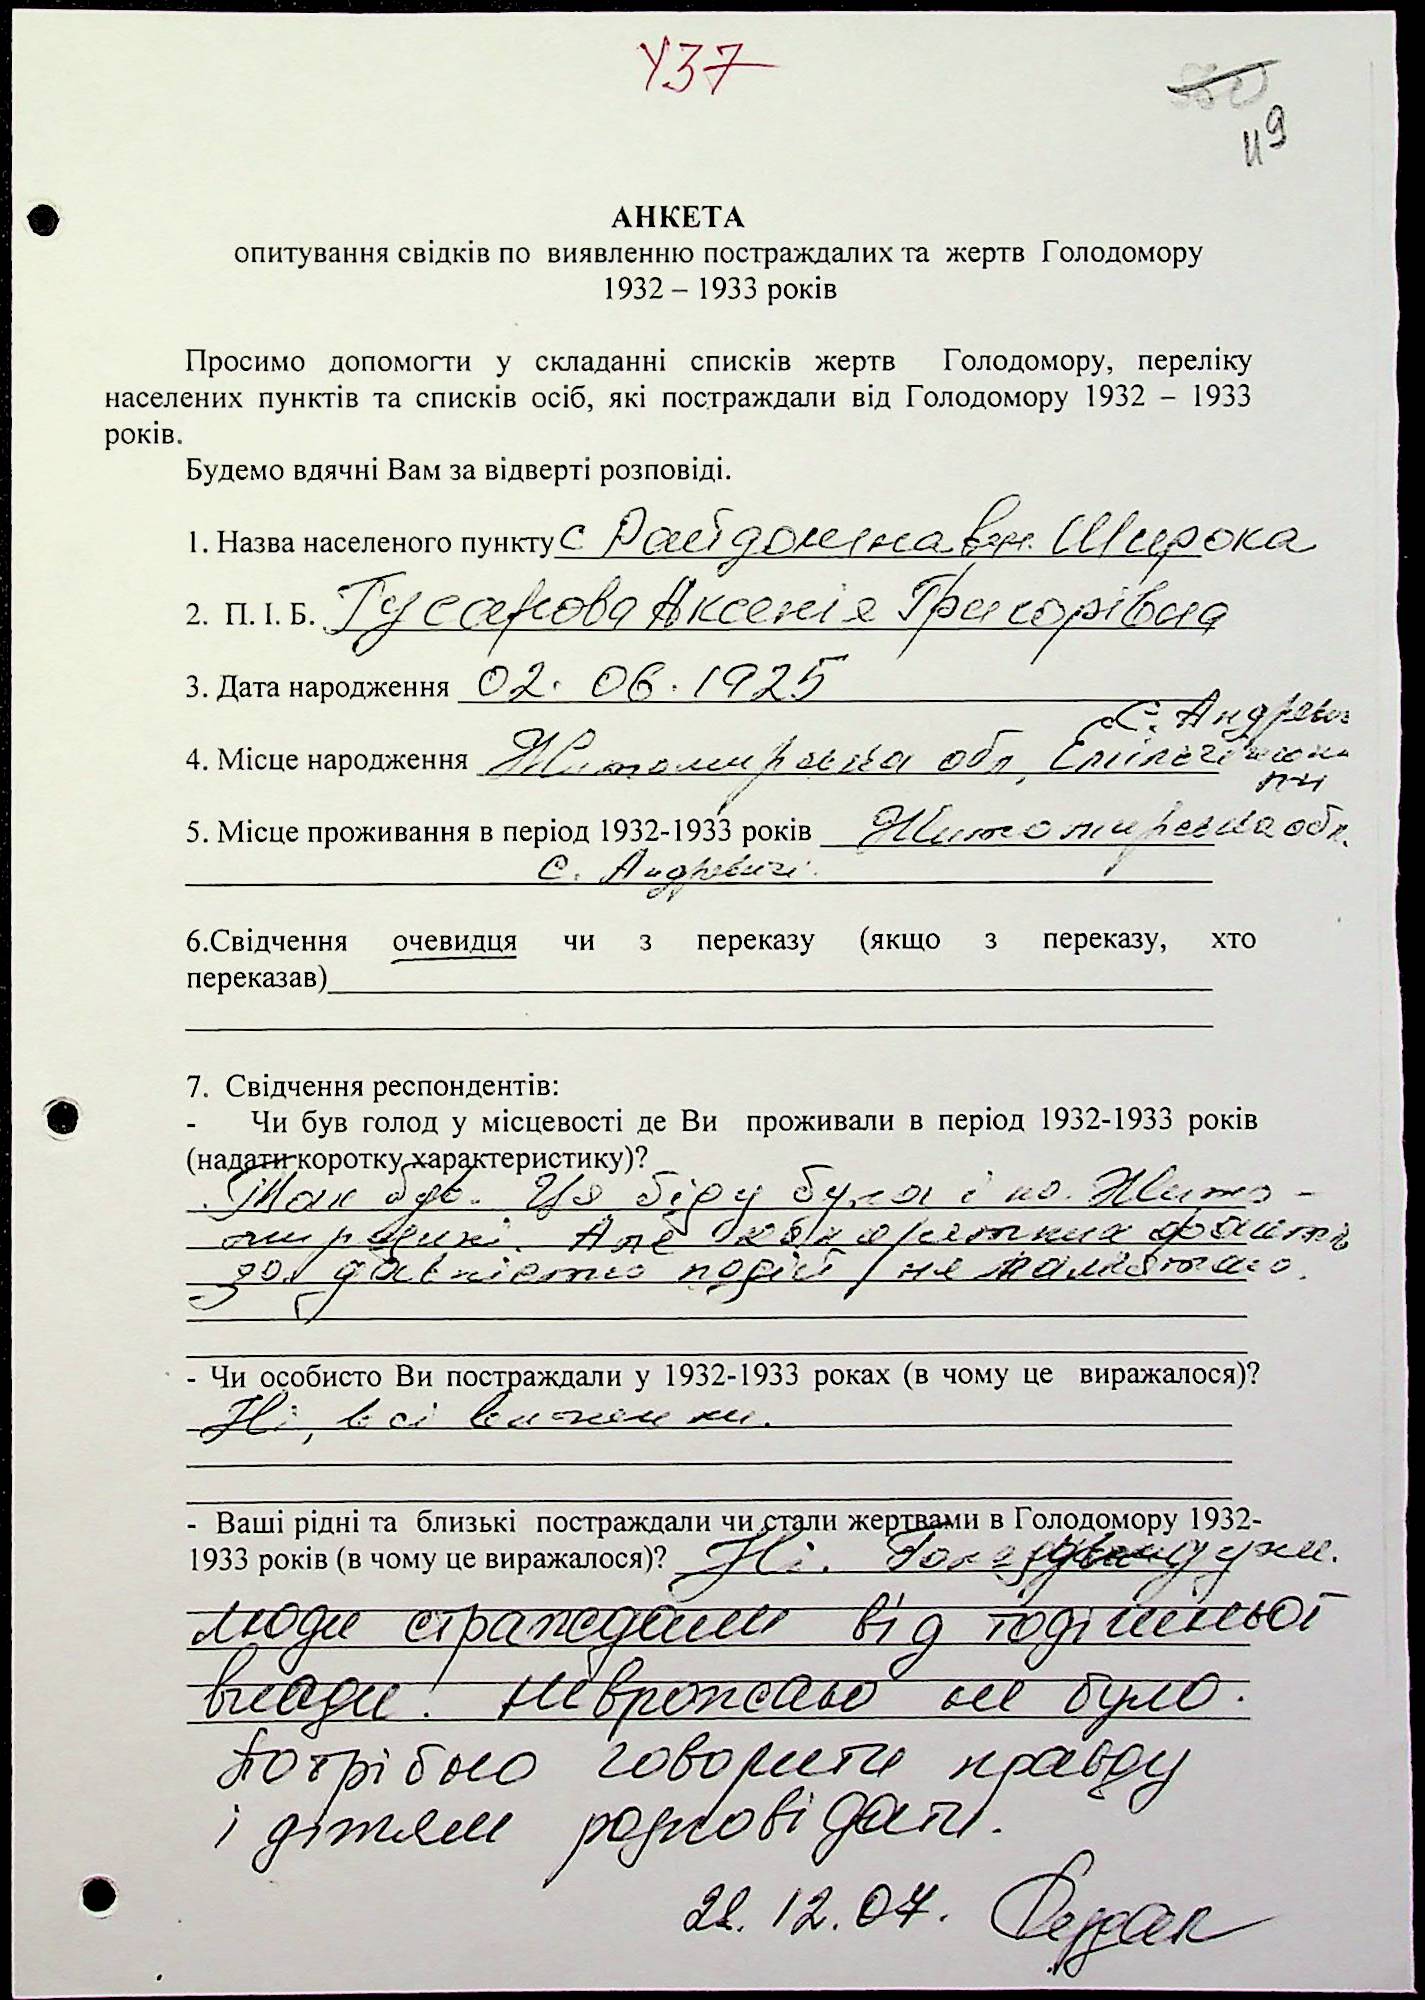 У37
119
АНКЕТА
опитування свідків по виявленню постраждалих та жертв Голодомору
1932 – 1933 років
Просимо допомогти у складанні списків жертв Голодомору, переліку
населених пунктів та списків осіб, які постраждали від Голодомору 1932 – 1933
років.
Будемо вдячні Вам за відверті розповіді.
1. Назва населеного пункту с Райдолина вул. Широка
2. П. І. Б. Гусарова Аксенія Григорівна
3. Дата народження 02. 06. 1925
с. Андревичі
4. Місце народження Житомирська обл,
5. Місце проживання в період 1932-1933 років Житомирська обл.
с. Андревичі.
6.Свідчення очевидця чи з переказу (якщо з переказу, хто
переказав)
7. Свідчення респондентів:
- Чи був голод у місцевості де Ви проживали в період 1932-1933 років
(надати коротку характеристику)?
Так був. Ця біда була і на Жито-
мирщині. Але конкретних фактів
за давністю подій не пам'ятаю.
- Чи особисто Ви постраждали у 1932-1933 роках (в чому це виражалося)?
Ні, всі вижили.
- Ваші рідні та близькі постраждали чи стали жертвами в Голодомору 1932-
1933 років (в чому це виражалося)? Ні.
люди страждали від тодішньої
влади. Неврожаю не було.
Потрібно говорити правду
і дітям розповідати.
22.12.07.